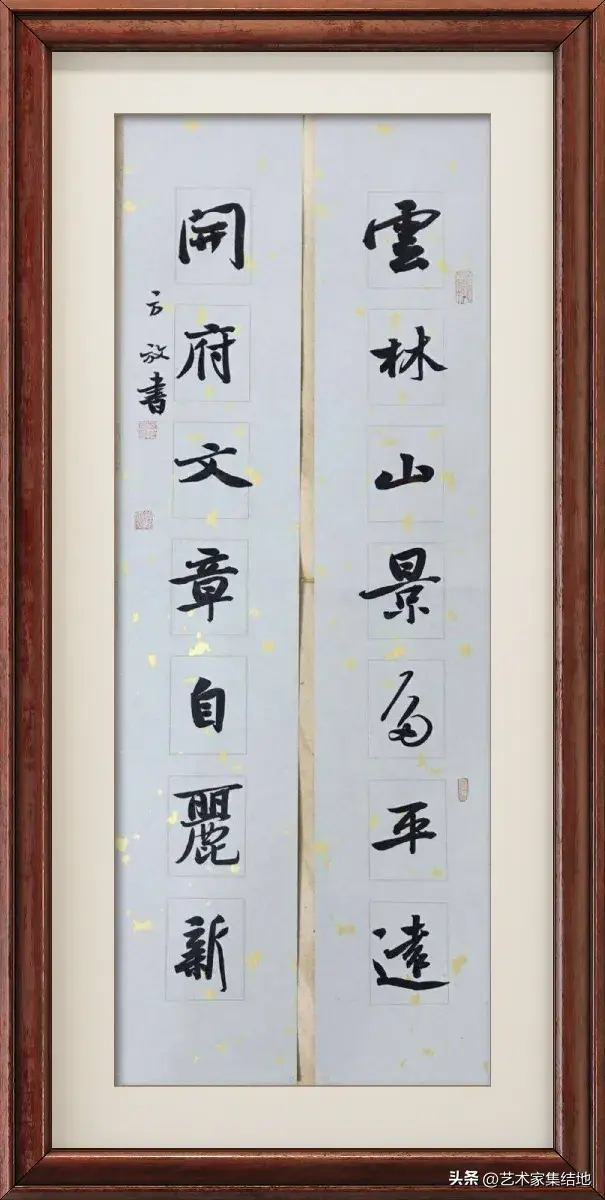 雲林山景多平遠
開府文章自麗新
方放書
头条 @艺术家集结地